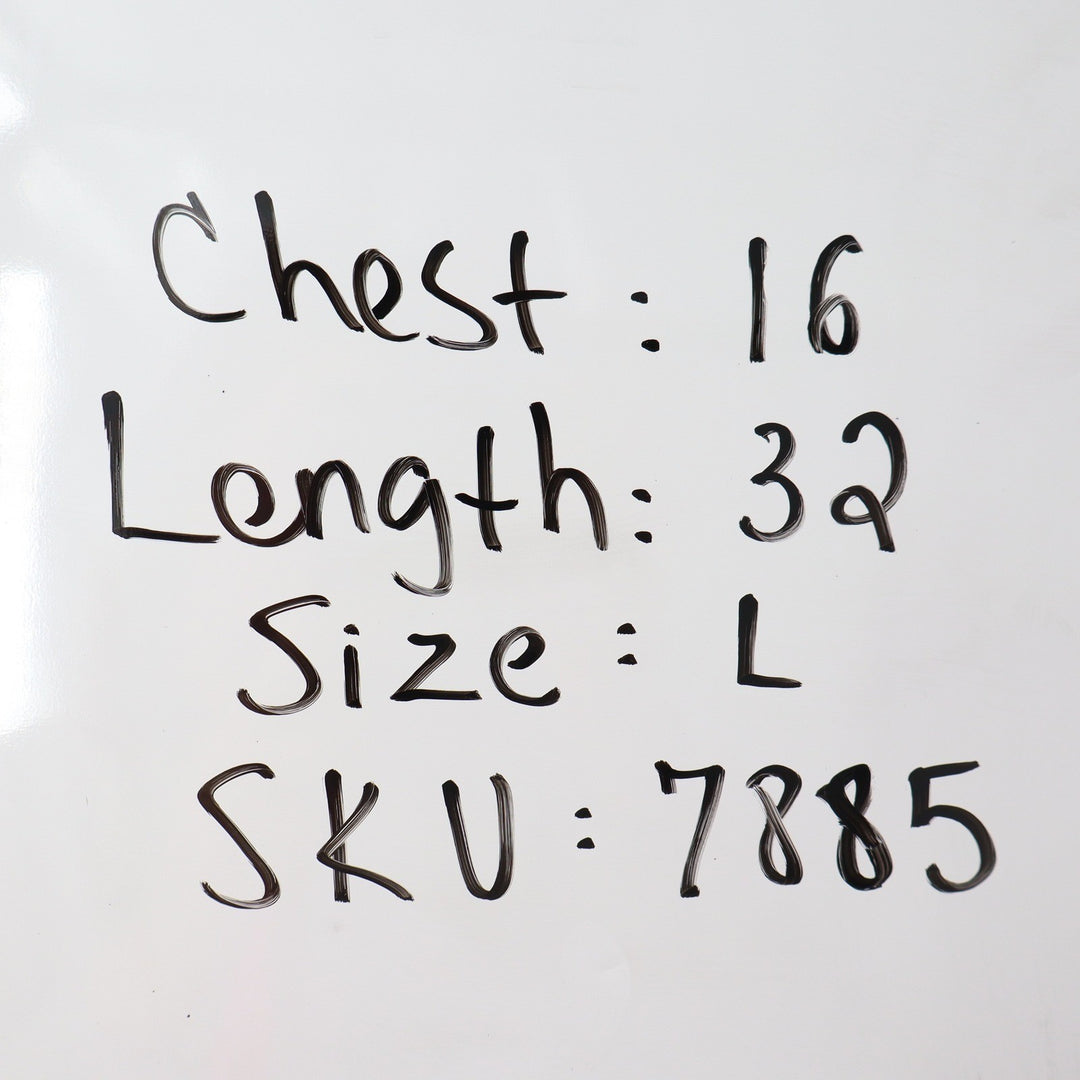 Chest: 16
Length: 32
Size: L
SKU: 7885